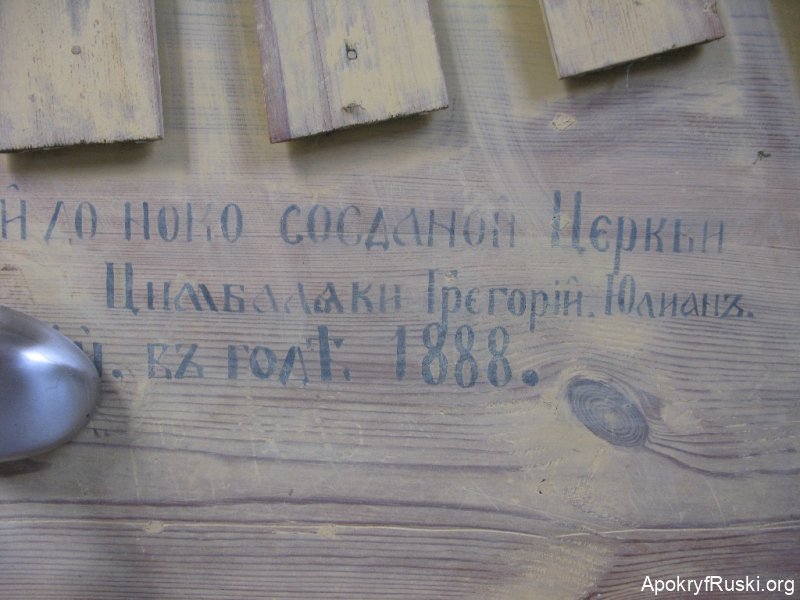 Й ДО НОКО СОСДАНОЙ ЦЕРКВИ
ЦИМБАЛѦКИ ГРЄГОРІЙ. ЮЛИАНЪ.
ІЙ. ВЪ ГОДѢ. 1888.
ApokryfRuski.org